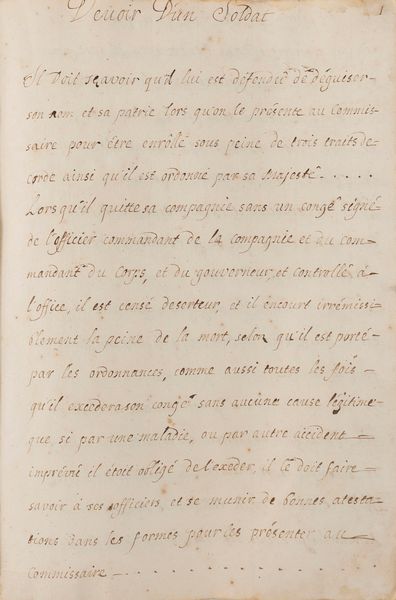 Devoir D'un Soldat
1
Il Doit scavoir qu'il lui est défendeé de déguiser
son nom et sa patrie lors qu'on le présente au Commis-
saire pour être enrôllé sous peine de trois traits de
corde ainsi qu'il est ordonné par sa Majesté . . . . .
Lors qu'il quitte sa compagnie sans un congé signé
de l'officier commandant de la compagnie et du com-
mandant du Corps, et du gouverneur, et controllé à
l'office, il est censé deserteur, et il encourt irrémissi-
blement la peine de la mort, selon qu'il est porté
par les ordonnances, comme aussi toutes les fois
qu'il excedera son congé sans aucune cause légitime
que, si par une maladie, ou par autre accident
imprévû il étoit obligé de l'exceder, il le doit faire
savoir à ses officiers, et se munir de bonnes atesta-
tions dans les formes pour les présenter au
Commissaire . . . . . . . . . .